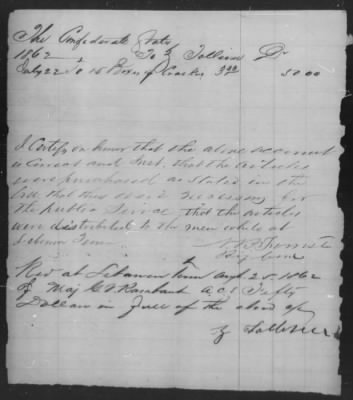 The Confederate States
1862 To Z Tolliver Dr
July 22 To 15 Boxes of Crackers 3.33 50.00
I Certify on honor that the above account
is Correct and Just, that the articles
were purchased as stated in the
that they were necessary for
the public Service that the articles
were distributed to the men while at
Lebanon Tenn
Recd at Lebanon Tenn Augt 25 1862
of Maj A.C.S. Fifty
Dollars in full of the above
Z Tolliver